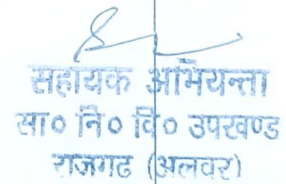 सहायक अभियन्ता
सा० नि० वि० उपखण्ड
राजगढ (अलवर)